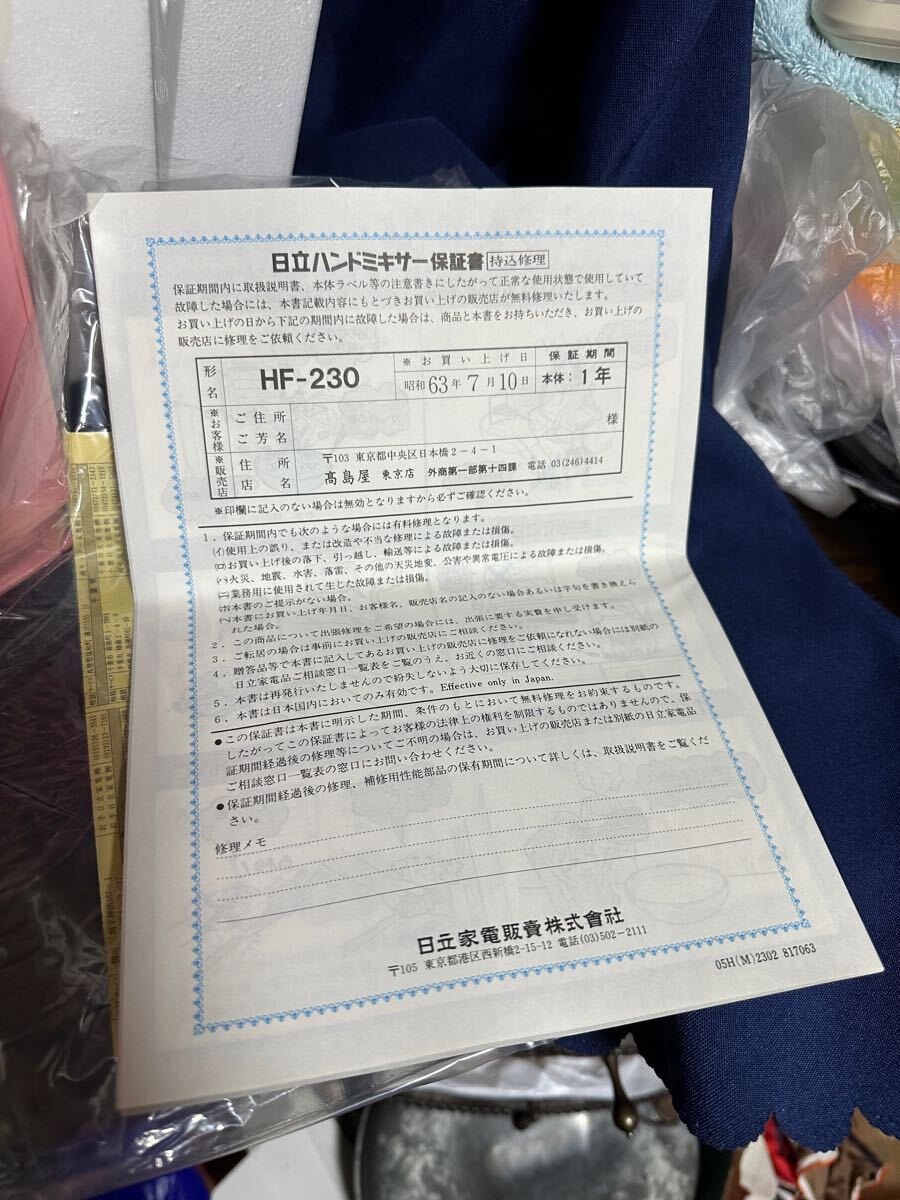 日立ハンドミキサー保証書 持込修理
保証期間内に取扱説明書、本体ラベル等の注意書きにしたがって正常な使用状態で使用していて
故障した場合には、本書記載内容にもとづきお買い上げの販売店が無料修理いたします。
お買い上げの日から下記の期間内に故障した場合は、商品と本書をお持ちいただき、お買い上げの
販売店に修理をご依頼ください。
形名 HF-230
※お買い上げ日 昭和63年7月10日
保証期間 本体：1年
※お客様 ご住所
ご芳名 様
※販売店 住所 〒103 東京都中央区日本橋2-4-1
店名 髙島屋 東京店 外商第一部第十四課 電話 03(246)4414
※印欄に記入のない場合は無効となりますから必ずご確認ください。
1．保証期間内でも次のような場合には有料修理となります。
(イ)使用上の誤り、または改造や不当な修理による故障または損傷。
(ロ)お買い上げ後の落下、引っ越し、輸送等による故障または損傷。
(ハ)火災、地震、水害、落雷、その他の天災地変、公害や異常電圧による故障または損傷。
(ニ)業務用に使用されて生じた故障または損傷。
(ホ)本書のご提示がない場合。
(ヘ)本書にお買い上げ年月日、お客様名、販売店名の記入のない場合あるいは字句を書き換えら
れた場合。
2．この商品について出張修理をご希望の場合には、出張に要する実費を申し受けます。
3．ご転居の場合は事前にお買い上げの販売店にご相談ください。
4．贈答品等で本書に記入してあるお買い上げの販売店に修理をご依頼になれない場合には別紙の
日立家電品ご相談窓口一覧表をご覧のうえ、お近くの窓口にご相談ください。
5．本書は再発行いたしませんので紛失しないよう大切に保存してください。
6．本書は日本国内においてのみ有効です。Effective only in Japan.
●この保証書は本書に明示した期間、条件のもとにおいて無料修理をお約束するものです。
したがってこの保証書によってお客様の法律上の権利を制限するものではありませんので、保
証期間経過後の修理等についてご不明の場合は、お買い上げの販売店または別紙の日立家電品
ご相談窓口一覧表の窓口にお問い合わせください。
●保証期間経過後の修理、補修用性能部品の保有期間について詳しくは、取扱説明書をご覧くだ
さい。
修理メモ
日立家電販賣株式會社
〒105 東京都港区西新橋2-15-12 電話(03)502-2111
05H(M)2302 817063